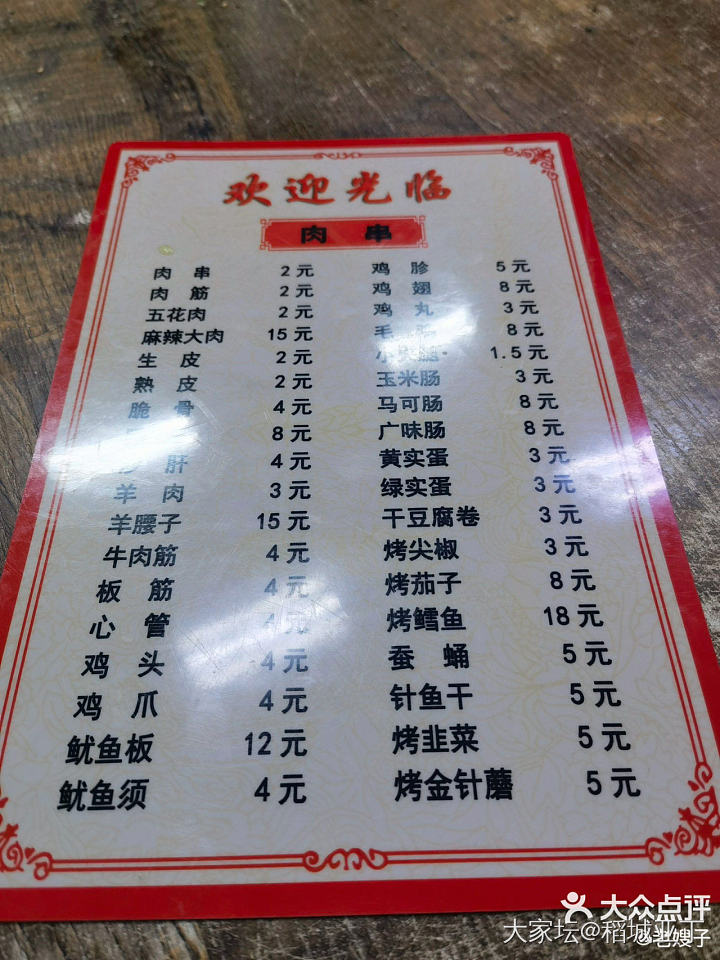 欢迎光临
肉串
肉串 2元
肉筋 2元
五花肉 2元
麻辣大肉 15元
生皮 2元
熟皮 2元
脆骨 4元
8元
肝 4元
羊肉 3元
羊腰子 15元
牛肉筋 4元
板筋 4元
心管 4元
鸡头 4元
鸡爪 4元
鱿鱼板 12元
鱿鱼须 4元
鸡胗 5元
鸡翅 8元
鸡丸 3元
毛 8元
小 1.5元
玉米肠 3元
马可肠 8元
广味肠 8元
黄实蛋 3元
绿实蛋 3元
干豆腐卷 3元
烤尖椒 3元
烤茄子 8元
烤鳕鱼 18元
蚕蛹 5元
针鱼干 5元
烤韭菜 5元
烤金针蘑 5元
大众点评
大家坛@稻城
@老嫂子